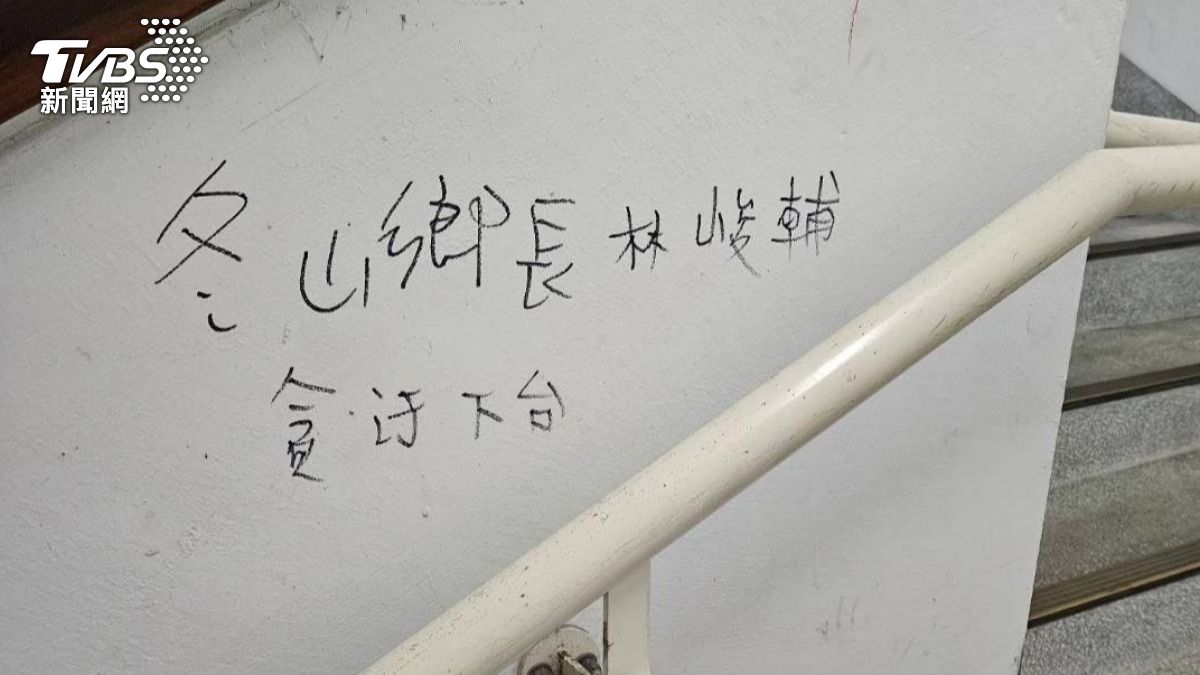 TVBS
新聞網
冬山鄉長林峻輔
貪汙下台